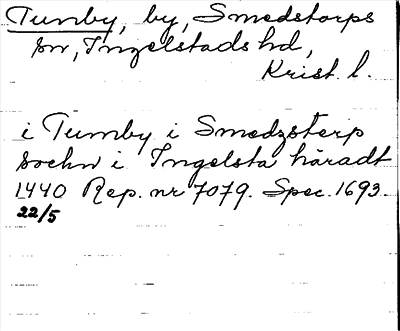 Tumby, by, Smedstorps
sn, Ingelstads hd,
Krist. l.
i Tumby i Smedzsterp
sockn i Ingelsta häradt
1440 Rep. nr 7079. Spec. 1693.
22/5